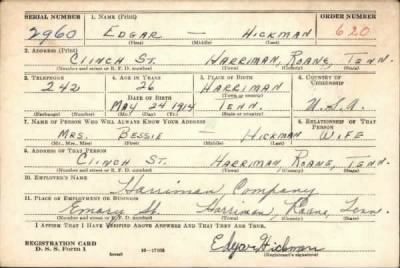 SERIAL NUMBER 1. NAME (Print) ORDER NUMBER
2960 EDGAR — HICKMAN 620
(First) (Middle) (Last)
2. ADDRESS (Print)
CLINCH ST. HARRIMAN, ROANE, TENN.
(Number and street or R. F. D. number) (Town) (County) (State)
3. TELEPHONE 4. AGE IN YEARS 5. PLACE OF BIRTH 6. COUNTRY OF CITIZENSHIP
242 26 HARRIMAN
DATE OF BIRTH (Town or county)
MAY 24 1914 TENN. U.S.A.
(Exchange) (Number) (Mo.) (Day) (Yr.) (State or country)
7. NAME OF PERSON WHO WILL ALWAYS KNOW YOUR ADDRESS 8. RELATIONSHIP OF THAT PERSON
MRS. BESSIE — HICKMAN WIFE
(Mr., Mrs., Miss) (First) (Middle) (Last)
9. ADDRESS OF THAT PERSON
CLINCH ST. HARRIMAN ROANE, TENN.
(Number and street or R. F. D. number) (Town) (County) (State)
10. EMPLOYER'S NAME
Harriman Company
11. PLACE OF EMPLOYMENT OR BUSINESS
Emory St. Harriman, Roane, Tenn.
(Number and street or R. F. D. number) (Town) (County) (State)
I AFFIRM THAT I HAVE VERIFIED ABOVE ANSWERS AND THAT THEY ARE TRUE.
REGISTRATION CARD
D. S. S. Form 1 (over) Edgar Hickman
(Registrant's signature)